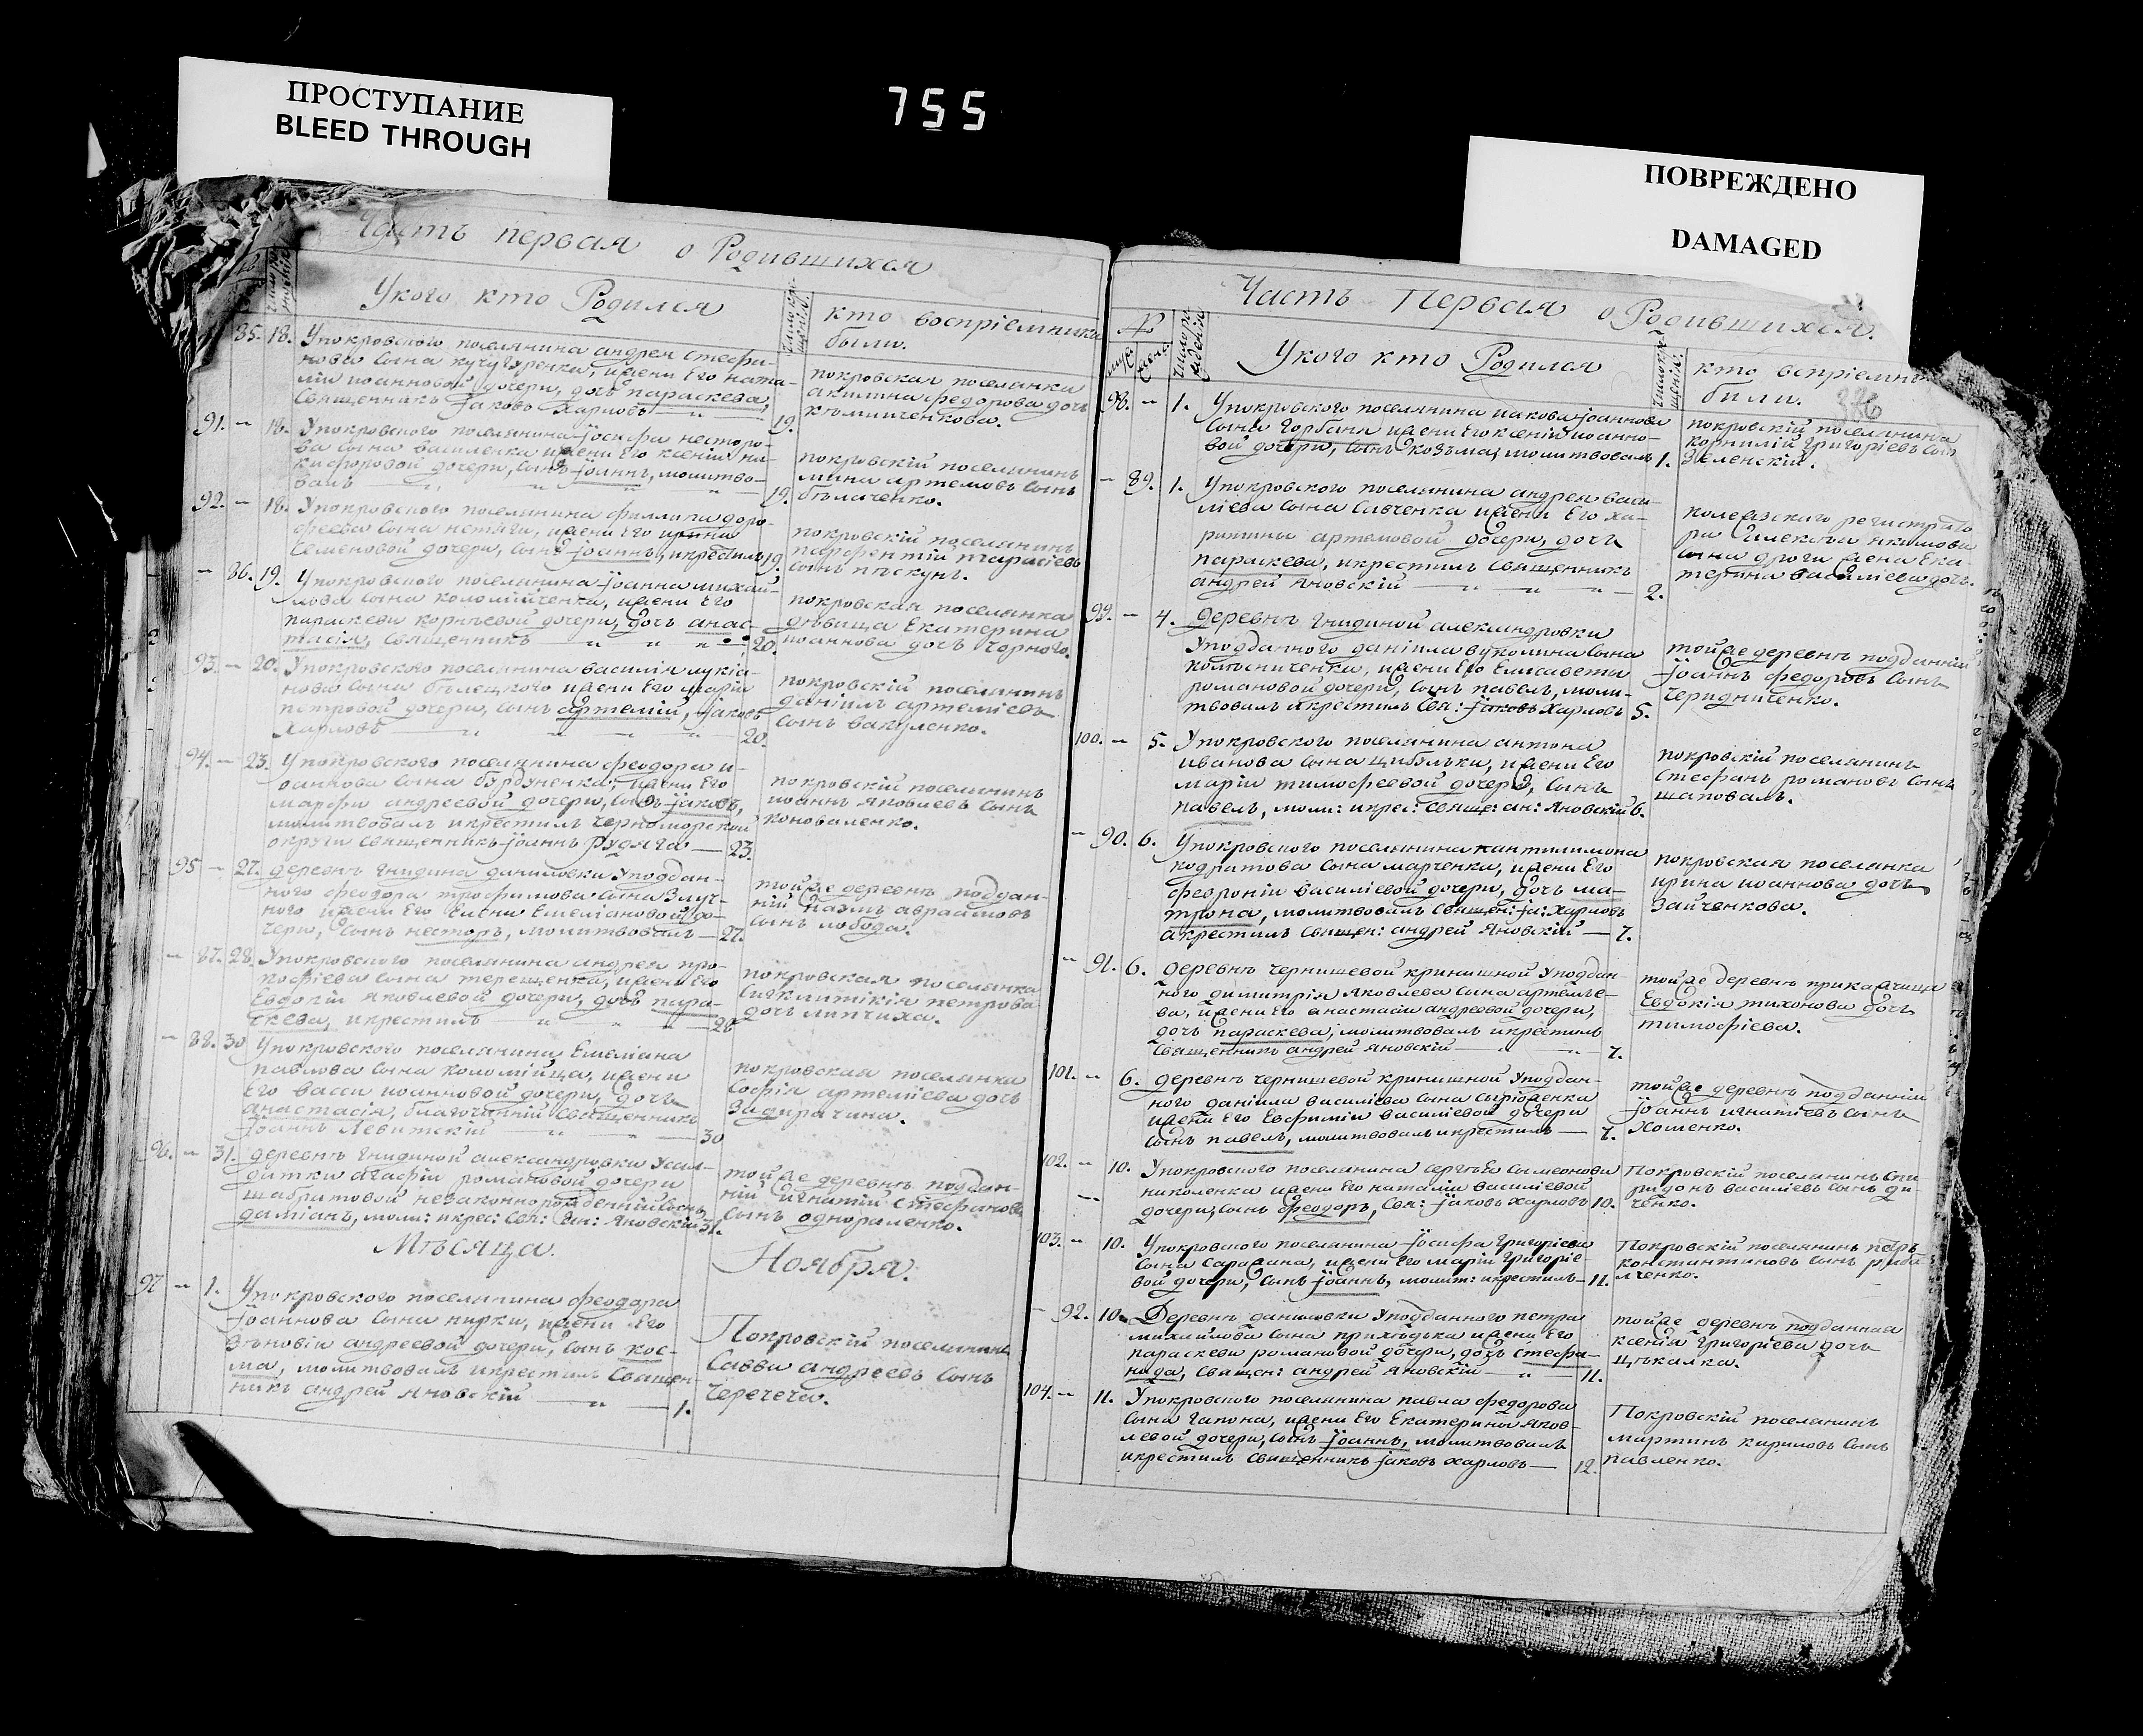 ПРОСТУПАНИЕ
BLEED THROUGH
755
ПОВРЕЖДЕНО
DAMAGED
Часть первая о Родившихся
Укого кто Родился
кто воспріемники
были.
85. 18. Упокровского поселянина андрея стефа-
нова сына кучугуренка, жени Его ната-
ліи иоанновой дочери, дочь параскева,
священникъ Іаковъ Харловъ 19.
покровская поселянка
акилина федорова дочь
91. — 18. Упокровского поселянина Іосифа несторо-
ва сына василенка жени Его ксеніи ни-
кифоровой дочери, сынъ Іоаннъ, молитво-
валъ 19.
покровскій поселянинъ
мина артемовъ сынъ
бѣлаченко.
92. — 18. Упокровского поселянина филипа доро-
феева сына нетяги, жени Его ирини
Семеновой дочери, сынъ Іоаннъ, икрестилъ 19.
покровскій поселянинъ
парфентій тарасіевъ
сынъ пѣскунъ.
— 86. 19. Упокровского поселянина Іоанна михай-
лова сына коломійченка, жени Его
параскеви корнѣевой дочери, дочь анас-
тасія, священникъ 20.
покровская поселянка
дѣвица Екатерина
иоаннова дочь чорного.
93. — 20. Упокровского поселянина василія лукіа-
нова сына бѣлецкого жени Его маріи
петровой дочери, сынъ артемій, Іаковъ
Харловъ 20.
покровскій поселянинъ
даніилъ артеміевъ
сынъ вакуленко.
94. — 23. Упокровского поселянина феодора и-
оаннова сына бурдуненка, жени Его
марфи андреевой дочери, сынъ Іаковъ,
молитвовалъ икрестилъ черноморской
округи священникъ Іоаннъ Рудяга — 23.
покровскій поселянинъ
иоаннъ яковлевъ сынъ
коноваленко.
95 — 27. деревнѣ гнидина даниловки Уподдан-
ного феодора трофимова сына
ного жени Его Елени Емеліановой до-
чери, сынъ несторъ, молитвовалъ — 27.
тойже деревнѣ поддан-
ній павлъ авраамовъ
сынъ лобода.
— 87. 28. Упокровского поселянина андрея про-
кофіева сына терещенка, жени Его
Евдокіи яковлевой дочери, дочь пара-
скева, икрестилъ 28
покровская поселянка
Сигклитікія петрова
дочь липчиха.
— 88. 30 Упокровского поселянина Емеліана
павлова сына коломійца, жени
Его васси иоанновой дочери, дочь
анастасія, благочинній священникъ
Іоаннъ Левитскій 30
покровская поселянка
софія артеміева дочь
Задирачина.
96. — 31. деревнѣ гнидиной александровки Усол-
датки агафіи романовой дочери
незаконнорожденній сынъ
даміанъ, моли: икрес: свя: ан: яновскій 31.
тойже деревнѣ поддан-
ній игнатій стефановъ
сынъ однораленко.
Мѣсяца. Ноября.
97 — 1. Упокровского поселянина феодора
Іоаннова сына кирки, жени Его
Зѣновіи андреевой дочери, сынъ кос-
ма, молитвовалъ икрестилъ священ-
никъ андрей яновскій 1.
Покровскій поселянинъ
Савва андреевъ сынъ
Черечеча.
Часть Первая о Родившихся.
Укого кто Родился
кто воспріемник
били.
386
98. — 1. Упокровского поселянина иакова Іоаннова
сына горбаня жени Его ксеніи иоанно-
вой дочери, сынъ козьма, молитвовалъ 1.
покровскій поселянинъ
корнилій григоріевъ сын
Зеленскій.
— 89. 1. Упокровского поселянина андрея васи-
ліева сына Савченка жени Его ха-
ритины артемовой дочери, дочь
параскева, икрестилъ священникъ
андрей яновскій 2.
колежского регистрато
ра алексѣя якимова
сына други жена Ека-
терина василіева дочь.
99. — 4. деревнѣ гнидиной александровки
Уподданного даніила вуколина сына
колѣсниченка, жени Его Елисаветы
романовой дочери, сынъ павелъ, моли-
твовалъ икрестилъ свя: Іаковъ Харловъ 5.
тойже деревнѣ подданній
Іоаннъ федоровъ сынъ
чередниченко.
100. — 5. Упокровского поселянина антона
иванова сына цибульки, жени Его
маріи тимофеевой дочери, сынъ
павелъ, моли: икрес: свяще: ан: яновскій 6.
покровскій поселянинъ
стефанъ романовъ сынъ
шаповалъ.
— 90. 6. Упокровского поселянина пантилимона
кодратова сына марченка, жени Его
февроніи василіевой дочери, дочь ма-
трона, молитвовалъ священ: Іа: Харловъ
акрестилъ священ: андрей яновскій — 7.
покровская поселянка
ирина иоаннова дочь
Зайченкова.
— 91. 6. деревнѣ чернишевой кринишной Уподдан-
ного димитрія яковлева сына артемье-
ва, жени Его анастасіи андреевой дочери,
дочь параскева, молитвовалъ икрестилъ
священникъ андрей яновскій 7.
тойже деревнѣ прикащица
Евдокія тихонова дочь
тимофіева.
101. — 6. деревнѣ чернишевой кринишной Уподдан-
ного даніила василіева сына
жени Его Евфиміи василіевой дочери
сынъ павелъ, молитвовалъ икрестилъ — 7.
тойже деревнѣ подданній
Іоаннъ игнатіевъ сынъ
Хоменко.
102. — 10. Упокровского поселянина сергѣя Сімеонова
николенка жени Его наталіи василіевой
дочери, сынъ феодоръ, свя: Іаковъ Харловъ 10.
Покровскій поселянинъ спи
ридонъ василіевъ сынъ ди-
ченко.
103. — 10. Упокровского поселянина Іосифа григоріева
сына саражина, жени Его маріи григоріе-
вой дочери, сынъ Іоаннъ, молит: икрестилъ — 11.
Покровскій поселянинъ петръ
константиновъ сынъ риба
лченко.
— 92. 10. Деревнѣ даниловки Уподданного петра
михайлова сына приходька жени Его
параскеви романовой дочери, дочь стефа-
нида, священ: андрей яновскій 11.
тойже деревнѣ подданная
ксенія григоріева дочь
цѣкалка.
104. — 11. Упокровского поселянина павла федорова
сына гапона, жени Его Екатерины яков-
левой дочери, сынъ Іоаннъ, молитвовалъ
икрестилъ священникъ Іаковъ Харловъ — 12.
Покровскій поселянинъ
мартинъ кириловъ сынъ
павленко.